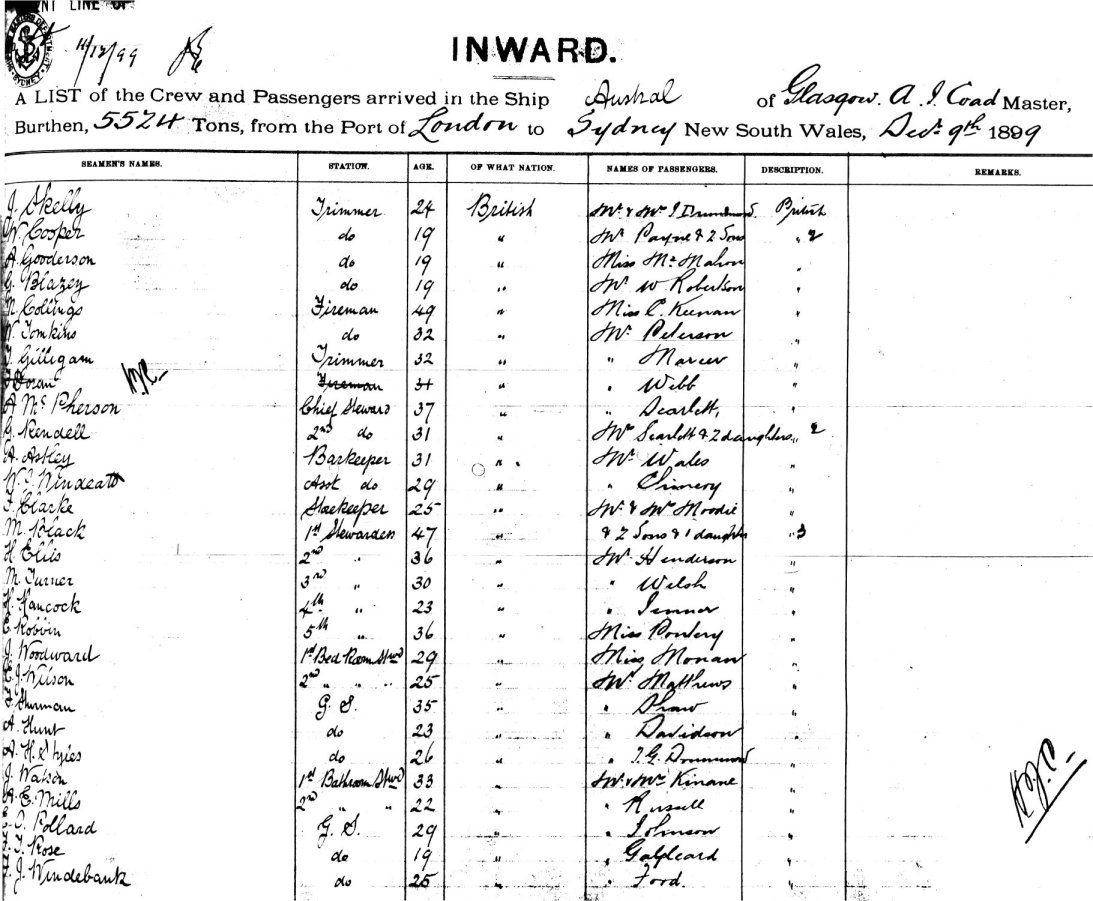 11/12/99
INWARD.
A LIST of the Crew and Passengers arrived in the Ship Austral of Glasgow. A. J. Coad Master,
Burthen, 5524 Tons, from the Port of London to Sydney New South Wales, Decr 9th 1899
SEAMEN'S NAMES. STATION. AGE. OF WHAT NATION. NAMES OF PASSENGERS. DESCRIPTION. REMARKS.
J. Skelly Trimmer 24 British Mr & Mrs J Drummond British
W. Cooper do 19 " Mrs Payne & 2 Sons " 2
A. Gooderson do 19 " Miss McMahon "
G. Blazey do 19 " Mr W Robertson "
N. Colings Fireman 49 " Miss C. Keenan "
W. Tomkins do 32 " Mr Peterson "
J. Gilligam Trimmer 32 " " "
Doran Fireman 31 " " Webb "
A McPherson Chief Steward 37 " " Scarlett, "
G. Rendell 2nd do 31 " Mrs Scarlett & 2 daughters " 2
A. Astley Barkeeper 31 " Mr Wales "
W. J. Windeatt Asst do 29 " " Chinery "
J. Clarke Storekeeper 25 " Mr & Mrs Moodie "
M. Black 1st Stewardess 47 " & 2 Sons & 1 daughter " 3
H. Ellis 2nd " 36 " Mr Henderson "
M. Turner 3rd " 30 " " Welsh "
H. Hancock 4th " 23 " " Jenner "
E. Robbin 5th " 36 " Miss "
J. Woodward 1st Bed Room Stwd 29 " Miss Monan "
E. J. Wilson 2nd " " " 25 " Mr Matthews "
J. Sherman G. S. 35 " " Shaw "
A. Hunt do 23 " " Davidson "
A. H. Styles do 26 " " J. G. Drummond "
J. Watson 1st Bathroom Stwd 33 " Mr & Mrs Kinane "
A. E. Mills 2nd " " 22 " " Russell "
O. Pollard G. S. 29 " " Johnson "
J. Rose do 19 " " "
J. Windebank do 25 " " Ford. "